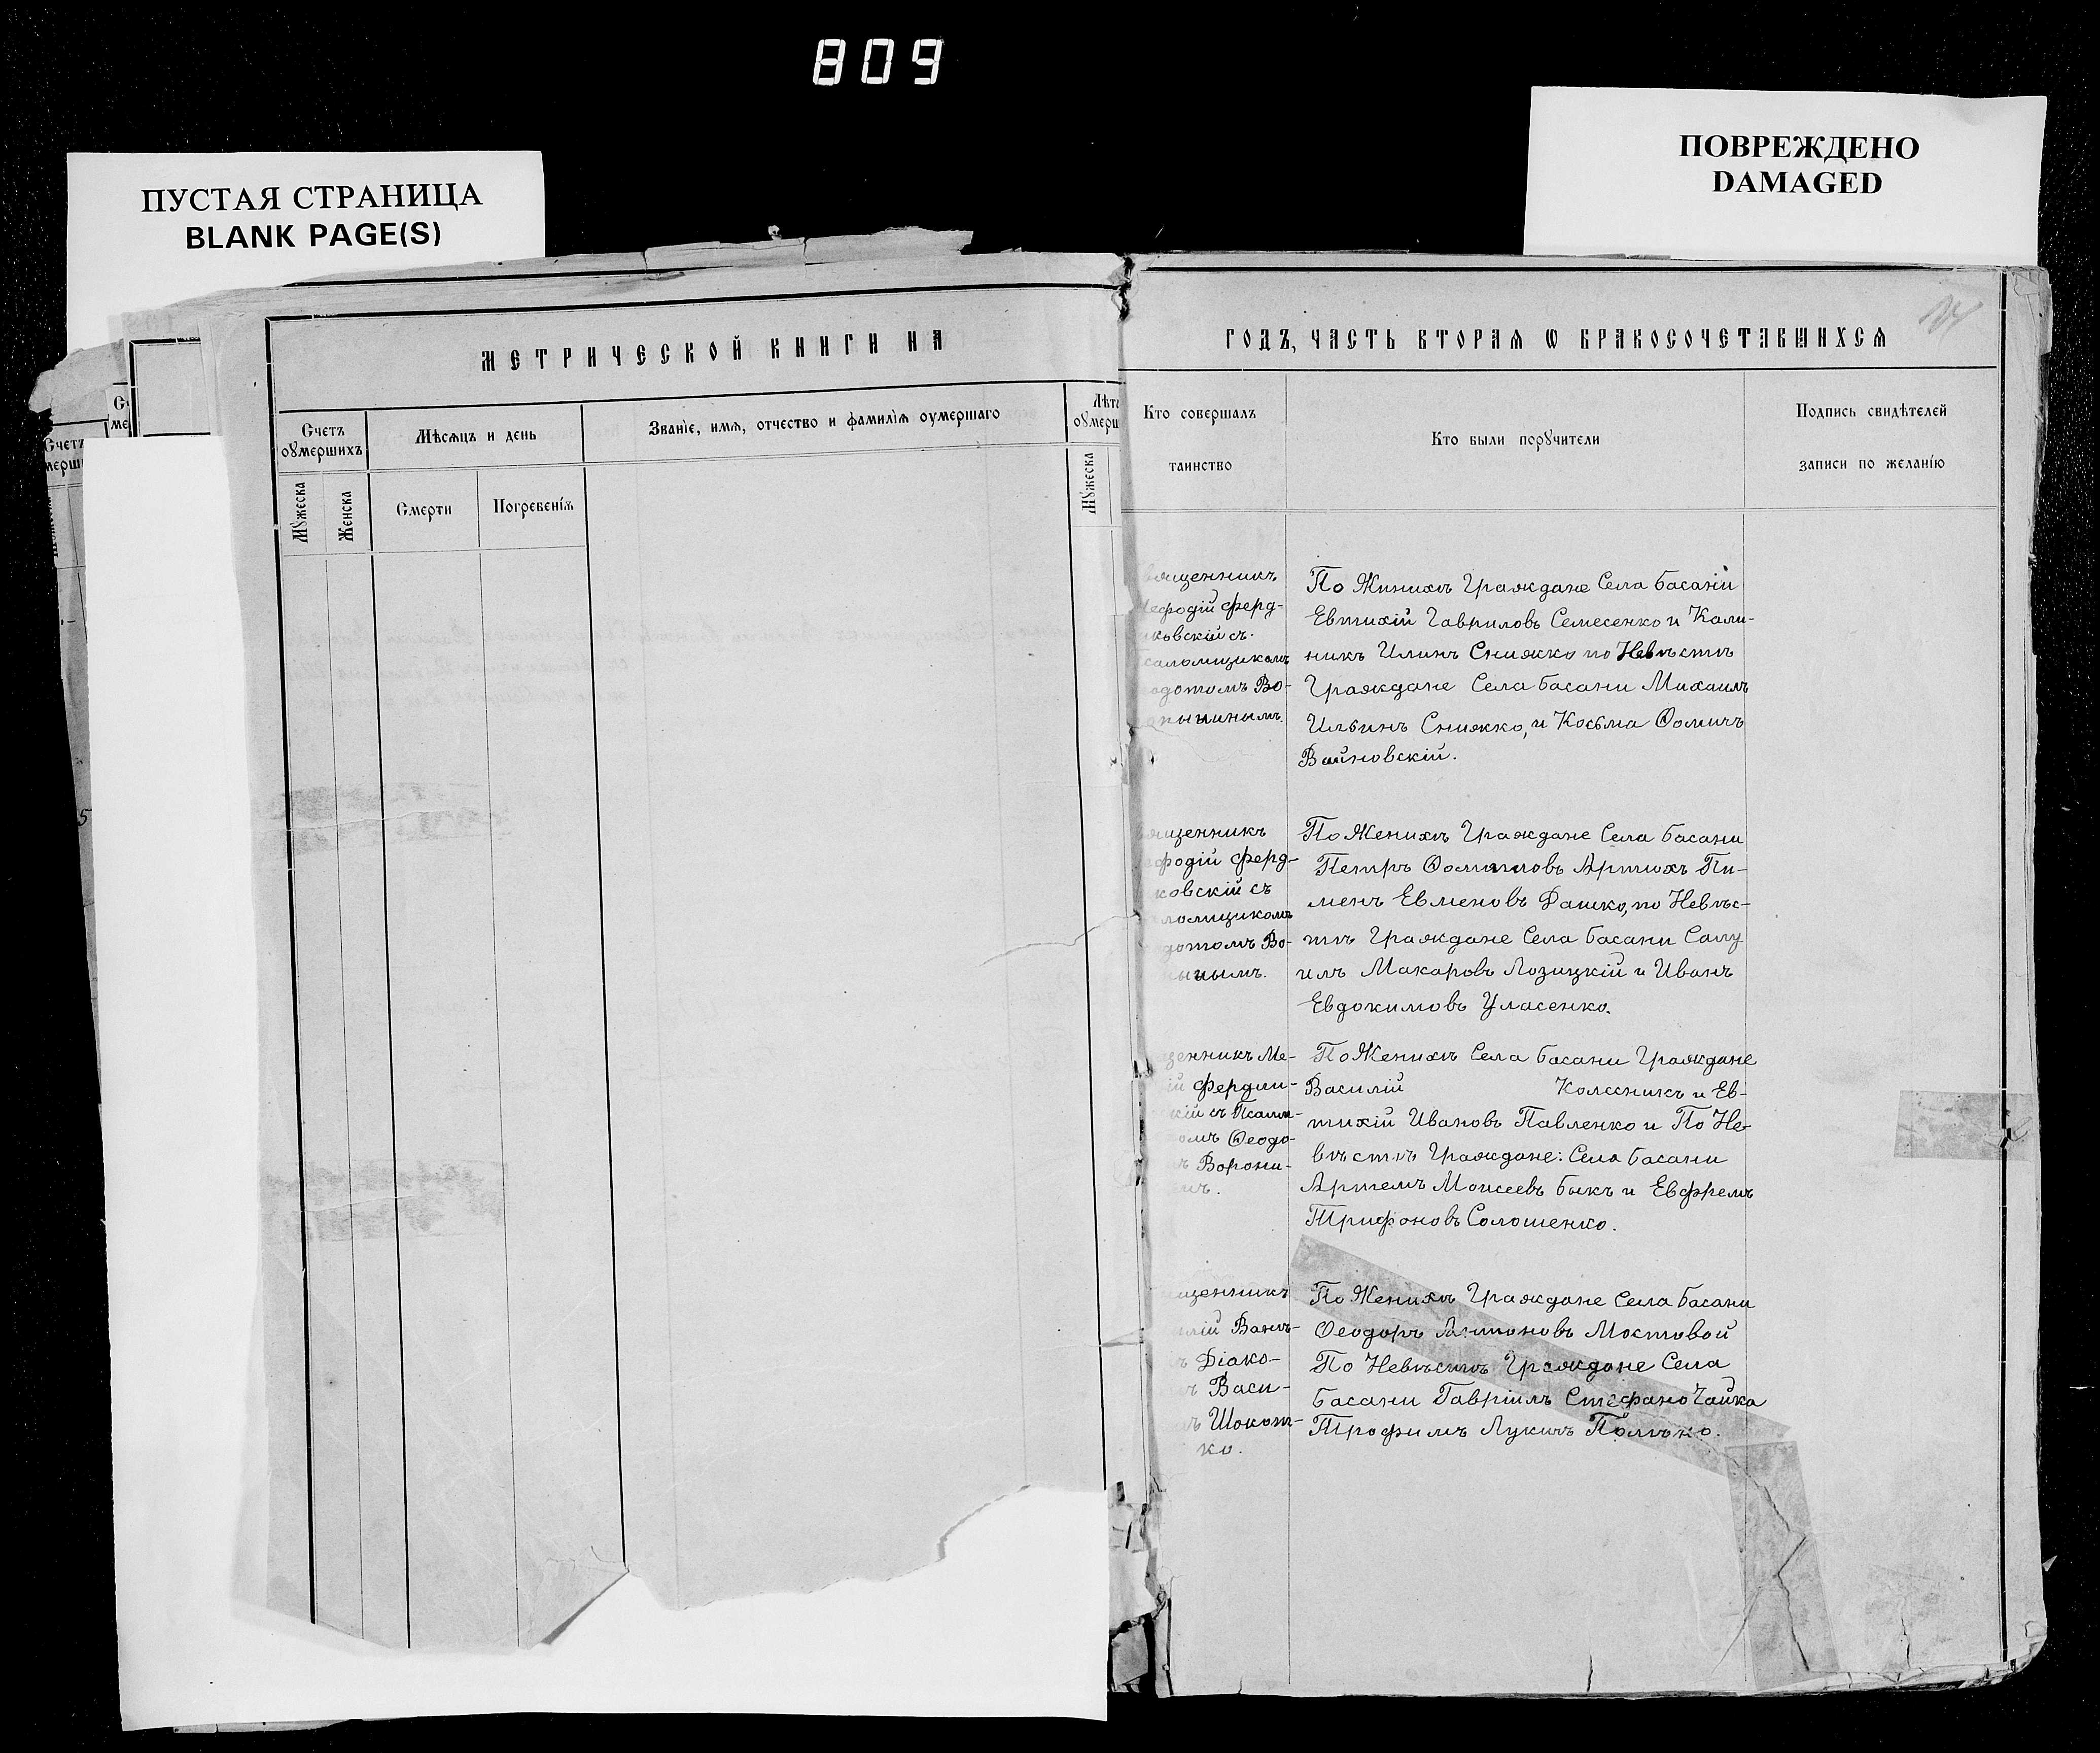 809
ПУСТАЯ СТРАНИЦА
BLANK PAGE(S)
ПОВРЕЖДЕНО
DAMAGED
МЕТРИЧЕСКОЙ КНИГИ НА
Счетъ
оумершихъ
Мѣсяцъ и день
Званїе, имя, отчество и фамилїя оумершаго
Мужеска
Женска
Смерти
Погребенїя
Мужеска
ГОДЪ, ЧАСТЬ ВТОРАЯ Ѡ БРАКОСОЧЕТАВШИХСЯ
Кто совершалъ
таинство
Кто были поручители
Подпись свидѣтелей
записи по желанію
вященникъ
ефодій Ферд-
ковскій съ
саломщикомъ
одотомъ Во-
По Жинихѣ Граждане Села Басани
Евтихій Гавриловъ Семесенко и Кали-
никъ Илинъ Снижко по Невѣстѣ
Граждане Села Басани Михаилъ
Ильинъ Снижко, и Косьма Ѳомичъ
Войновскій.
ященникъ
фодій Ферд-
ковскій съ
ломщикомъ
дотомъ Во-
нымъ.
По Женихѣ Граждане Села Басани
Петръ Артюхъ Пи-
менъ Евменовъ Дашко, по Невѣс-
тѣ Граждане Села Басани Саму
илъ Макаровъ Лозицкій и Иванъ
Евдокимовъ Уласенко.
щенникъ Ме-
ій Ферди-
кій съ Псалм-
омъ Ѳеодо-
Ворони-
По Женихѣ Села Басани Граждане
Василій Колесникъ и Ев-
тихій Ивановъ Павленко и По Не-
вѣстѣ Граждане: Села Басани
Артемъ Моисеевъ Быкъ и Евфремъ
Трифоновъ Солошенко.
щенникъ
лій
Діако-
Васи-
Шокот-
ко.
По Женихѣ Граждане Села Басани
Ѳеодоръ Антоновъ Мостовой
По Невѣстѣ Граждане Села
Басани Гавріилъ Стефано Чайка
Трофимъ Лукичъ